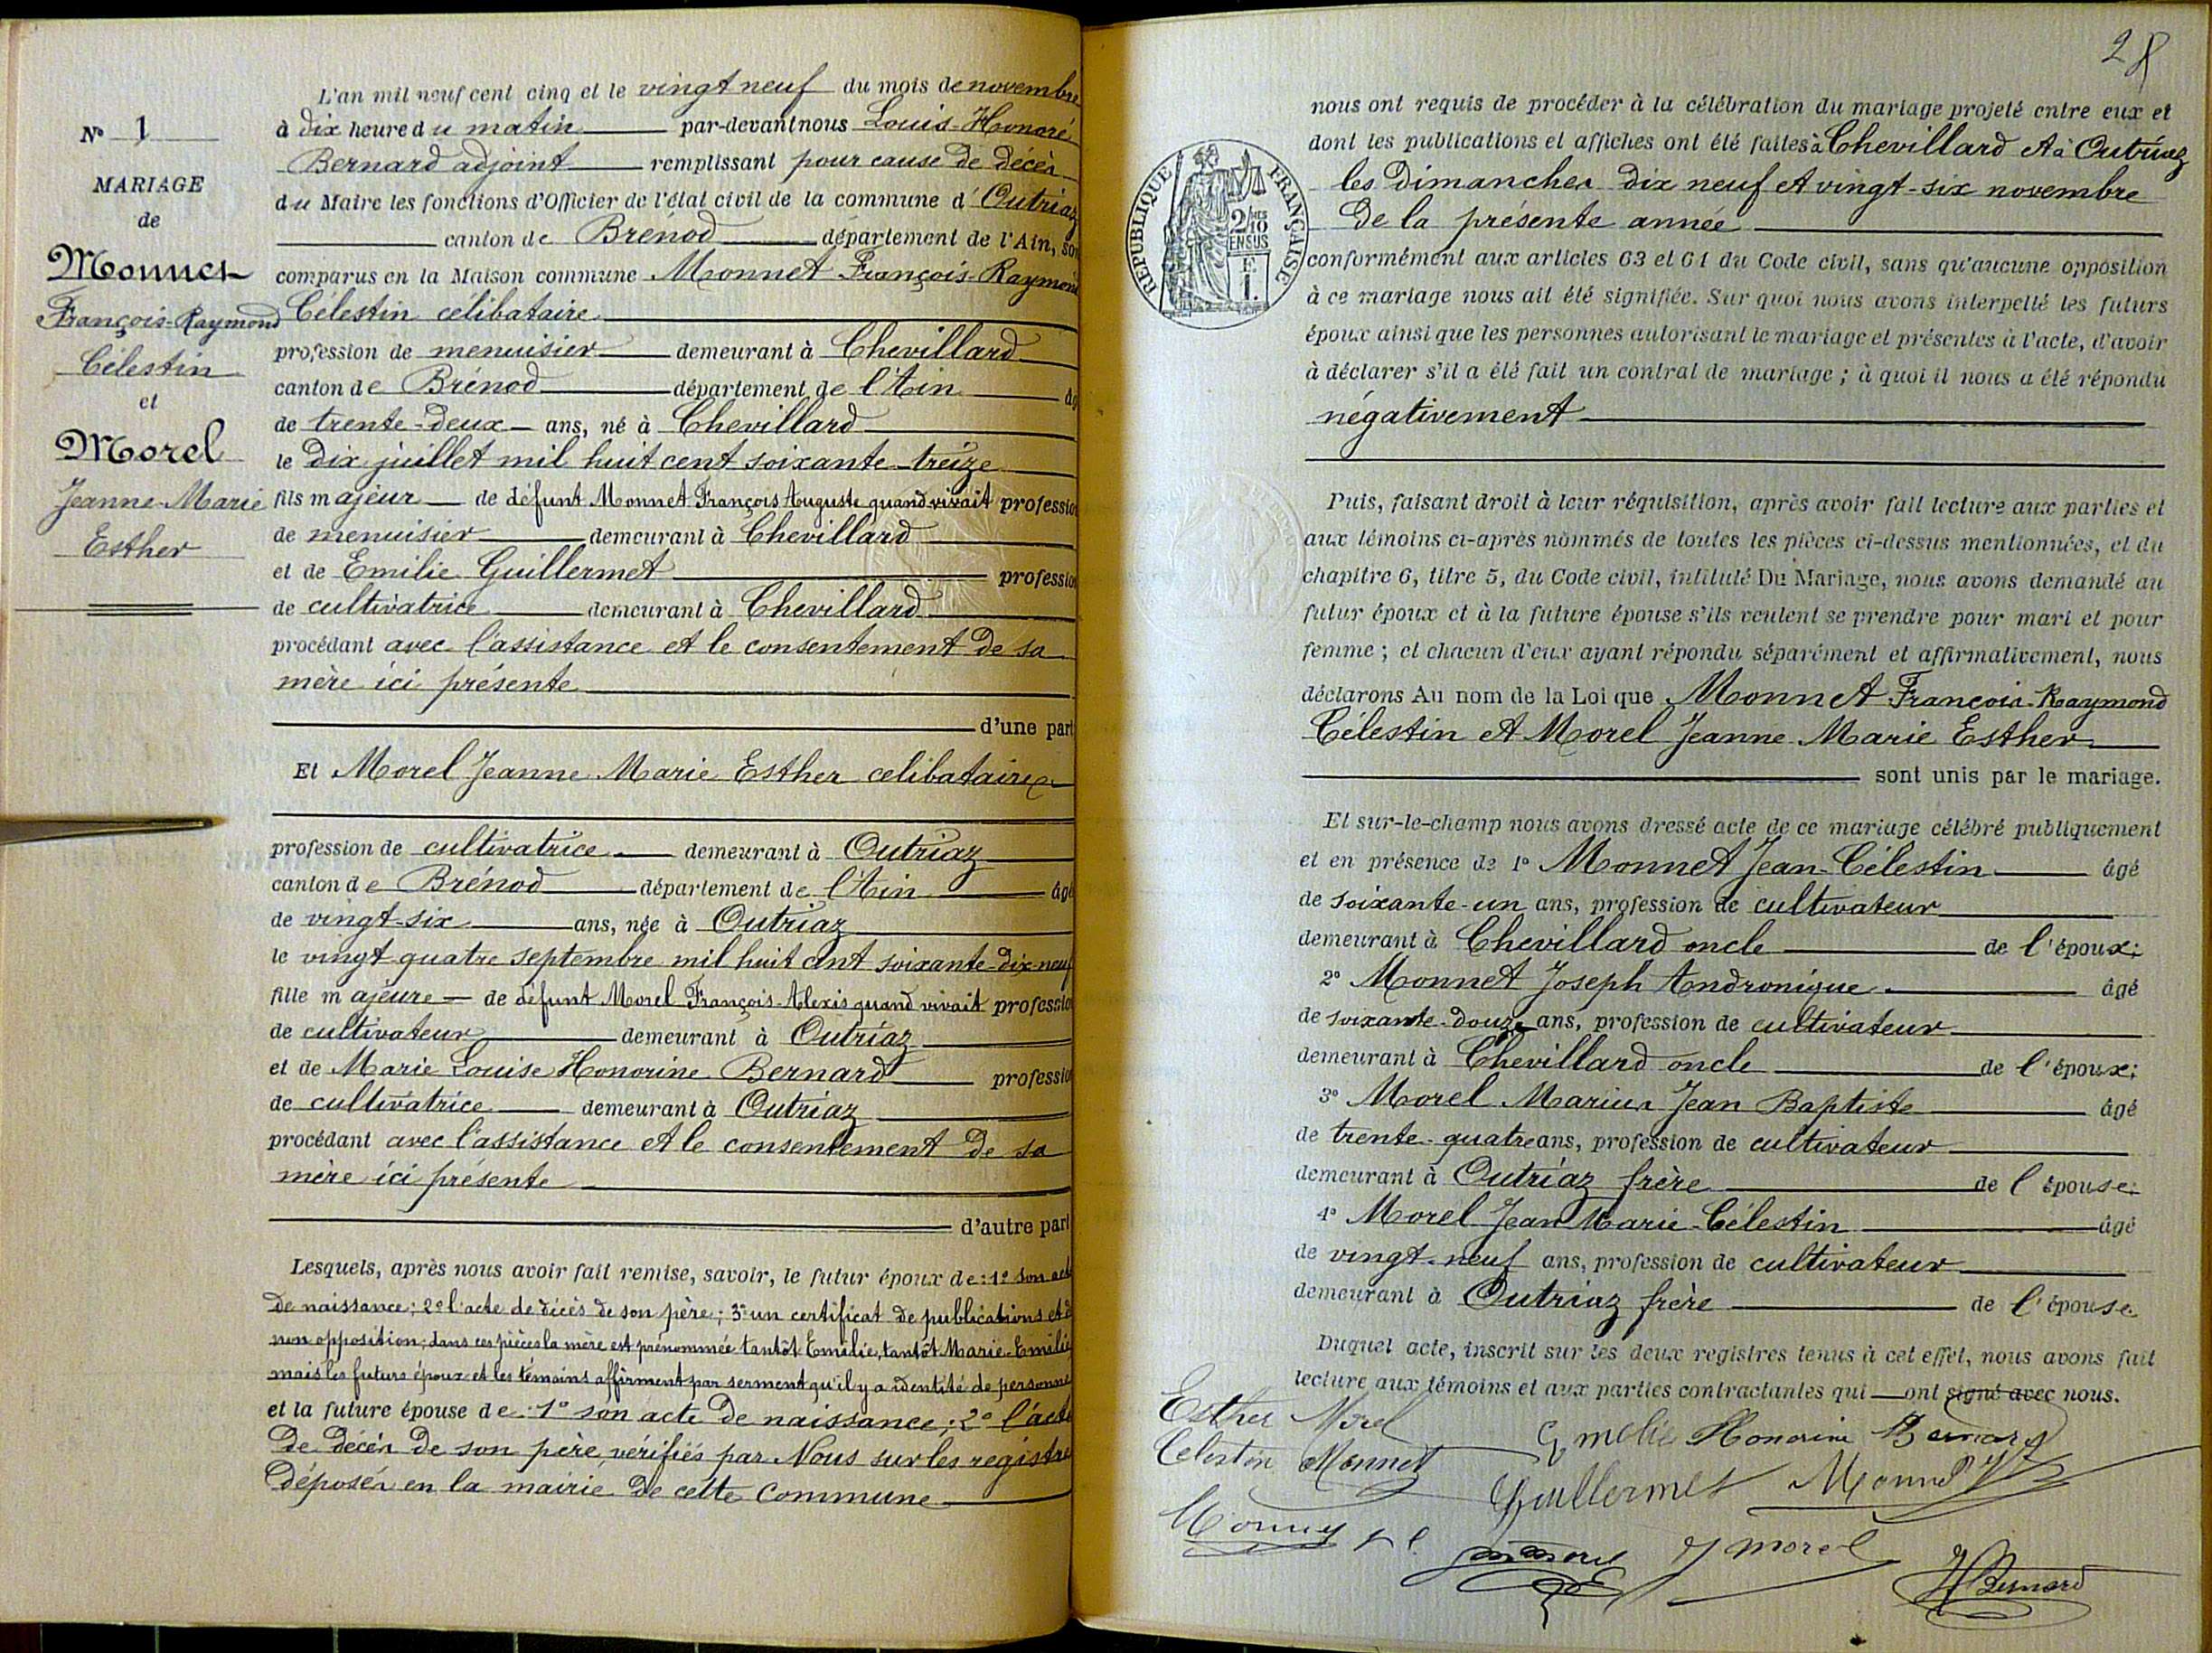 N° 1
MARIAGE
de
Monnet
François-Raymond
Célestin
et
Morel
Jeanne-Marie
Esther
L'an mil neuf cent cinq et le vingt neuf du mois de novembre
à dix heure du matin par-devant nous Louis-Honoré
Bernard adjoint remplissant pour cause de décès
du Maire les fonctions d'Officier de l'état civil de la commune d'Outriaz
canton de Brénod département de l'Ain, son
comparus en la Maison commune Monnet François-Raymond
Célestin célibataire
profession de menuisier demeurant à Chevillard
canton de Brénod département de l'Ain âg
de trente-deux ans, né à Chevillard
le dix juillet mil huit cent soixante-treize
fils majeur de défunt Monnet François Auguste quand vivait profession
de menuisier demeurant à Chevillard
et de Emilie Guillermet profession
de cultivatrice demeurant à Chevillard
procédant avec l'assistance et le consentement de sa
mère ici présente
d'une part
Et Morel Jeanne Marie Esther celibataire
profession de cultivatrice demeurant à Outriaz
canton de Brénod département de l'Ain âgé
de vingt-six ans, née à Outriaz
le vingt quatre septembre mil huit cent soixante-dix-neuf
fille majeure de défunt Morel François-Alexis quand vivait profession
de cultivateur demeurant à Outriaz
et de Marie Louise Honorine Bernard profession
de cultivatrice demeurant à Outriaz
procédant avec l'assistance et le consentement de sa
mère ici présente
d'autre part
Lesquels, après nous avoir fait remise, savoir, le futur époux de : 1° son acte
de naissance ; 2° l'acte de décès de son père ; 3° un certificat de publications et d
non opposition ; dans ces pièces la mère est prénommée tantôt Emilie, tantôt Marie-Emilie
mais les futurs époux et les témoins affirment par serment qu'il y a identité de personne
et la future épouse de : 1° son acte de naissance ; 2° l'acte
de décès de son père, vérifiés par Nous sur les registre
déposés en la mairie de cette commune
28
REPUBLIQUE FRANÇAISE
2/10
EN SUS
F.
1.
nous ont requis de procéder à la célébration du mariage projeté entre eux et
dont les publications et affiches ont été faites à Chevillard et à Outriaz
les Dimanches dix neuf et vingt-six novembre
de la présente année
conformément aux articles 63 et 61 du Code civil, sans qu'aucune opposition
à ce mariage nous ait été signifiée. Sur quoi nous avons interpellé les futurs
époux ainsi que les personnes autorisant le mariage et présentes à l'acte, d'avoir
à déclarer s'il a été fait un contrat de mariage ; à quoi il nous a été répondu
négativement
Puis, faisant droit à leur réquisition, après avoir fait lecture aux parties et
aux témoins ci-après nommés de toutes les pièces ci-dessus mentionnées, et du
chapitre 6, titre 5, du Code civil, intitulé Du Mariage, nous avons demandé au
futur époux et à la future épouse s'ils veulent se prendre pour mari et pour
femme ; et chacun d'eux ayant répondu séparément et affirmativement, nous
déclarons Au nom de la Loi que Monnet François-Raymond
Célestin et Morel Jeanne Marie Esther
sont unis par le mariage.
Et sur-le-champ nous avons dressé acte de ce mariage célébré publiquement
et en présence de 1° Monnet Jean-Célestin âgé
de soixante-un ans, profession de cultivateur
demeurant à Chevillard oncle de l'époux ;
2° Monnet Joseph Andronique âgé
de soixante-douze ans, profession de cultivateur
demeurant à Chevillard oncle de l'époux ;
3° Morel Marius Jean Baptiste âgé
de trente-quatre ans, profession de cultivateur
demeurant à Outriaz frère de l'épouse ;
4° Morel Jean Marie-Célestin âgé
de vingt-neuf ans, profession de cultivateur
demeurant à Outriaz frère de l'épouse
Duquel acte, inscrit sur les deux registres tenus à cet effet, nous avons fait
lecture aux témoins et aux parties contractantes qui ont signé avec nous.
Esther Morel
Emelie Honorine Bernard
Celestin Monnet
Guillermet Monnet
Monnet
Morel
J morel
H Bernard